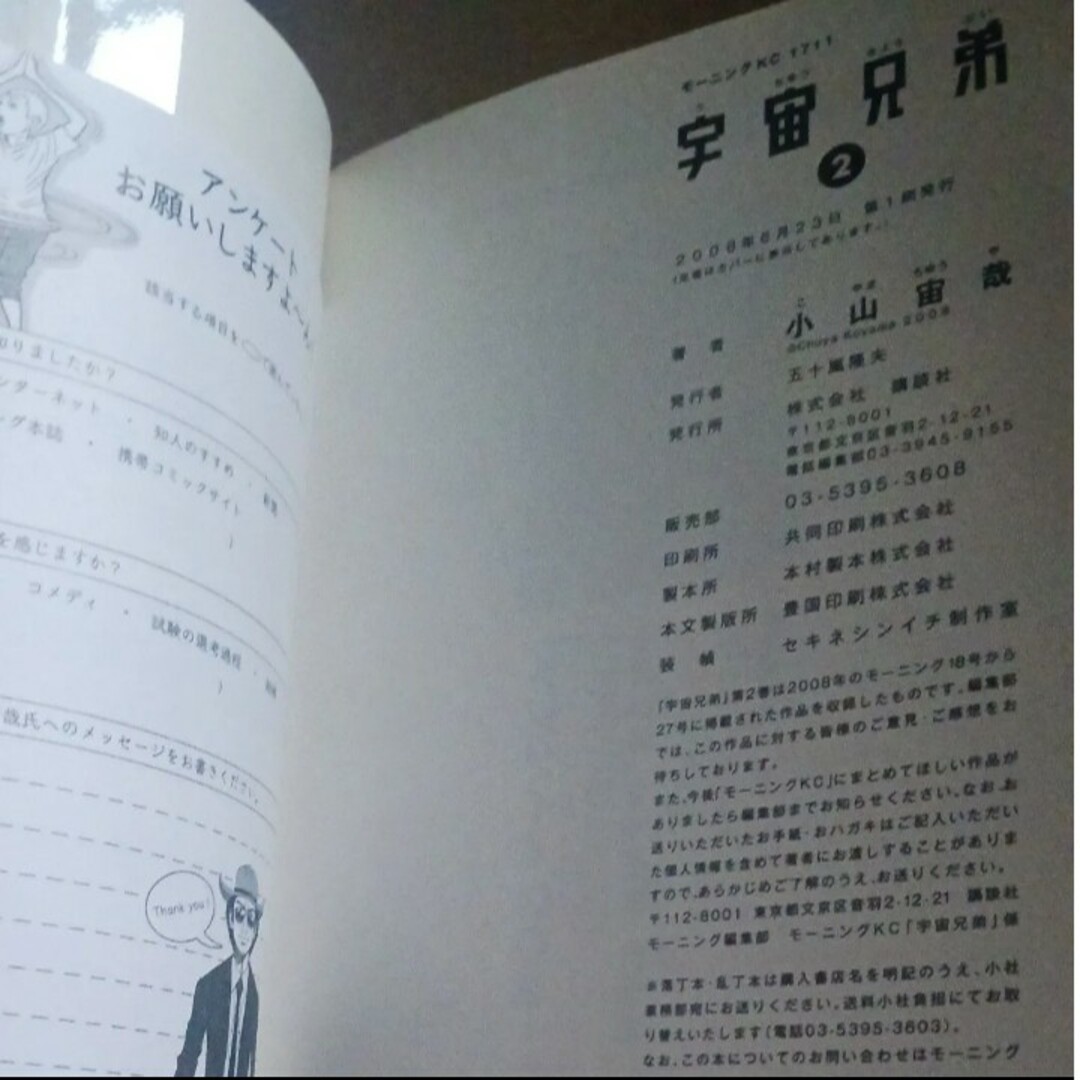 アンケート
お願いしますよ〜
該当する項目を
知りましたか？
ンターネット ・ 知人のすすめ ・
グ本誌 ・ 携帯コミックサイト
)
を感じますか？
コメディ ・ 試験の選考過程 ・
)
哉氏へのメッセージをお書きください。
Thank you!
モーニングKC 1711
うちゅうきょうだい
宇宙兄弟
2
2008年6月23日 第1刷発行
(定価はカバーに表示してあります。)
こやまちゅうや
著者 小山宙哉
©Chuya Koyama 2008
発行者 五十嵐隆夫
発行所 株式会社 講談社
〒112-8001
東京都文京区音羽2-12-21
電話編集部03-3945-9155
販売部 03-5395-3608
印刷所 共同印刷株式会社
製本所 本村製本株式会社
本文製版所 豊国印刷株式会社
装幀 セキネシンイチ制作室
「宇宙兄弟」第2巻は2008年のモーニング18号から
27号に掲載された作品を収録したものです。編集部
では、この作品に対する皆様のご意見・ご感想をお
待ちしております。
また、今後「モーニングKC」にまとめてほしい作品が
ありましたら編集部までお知らせください。なお、お
送りいただいたお手紙・おハガキはご記入いただい
た個人情報を含めて著者にお渡しすることがありま
すので、あらかじめご了解のうえ、お送りください。
〒112-8001 東京都文京区音羽2-12-21 講談社
モーニング編集部 モーニングKC「宇宙兄弟」係
※落丁本・乱丁本は購入書店名を明記のうえ、小社
業務部宛にお送りください。送料小社負担にてお取
り替えいたします(電話03-5395-3603)。
なお、この本についてのお問い合わせはモーニング